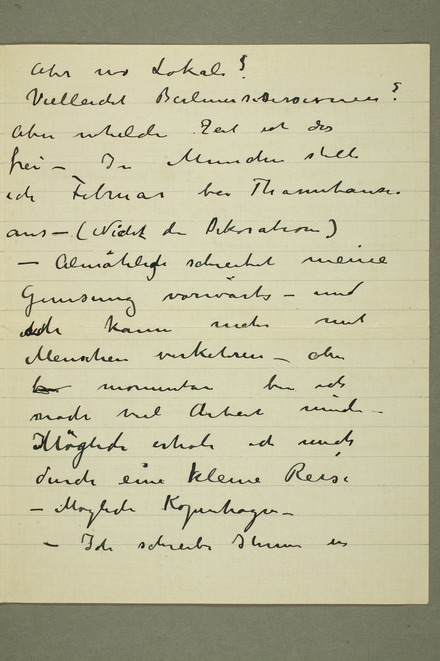 Aber wo Lokal?
Vielleicht Berliner ?
Aber welche Zeit ist das
frei – In München stelle
ich Februar bei Thannhauser
aus – (Nicht die Dekoration)
– Almählich schreitet meine
Genesung vorwärts – und
ich kann mehr mit
Menschen verkehren – aber
momentan bin ich
nach viel Arbeit müde –
Möglich erhole ich mich
durch eine kleine Reise
– Möglich Kopenhagen –
– Ich schreibe Ihnen